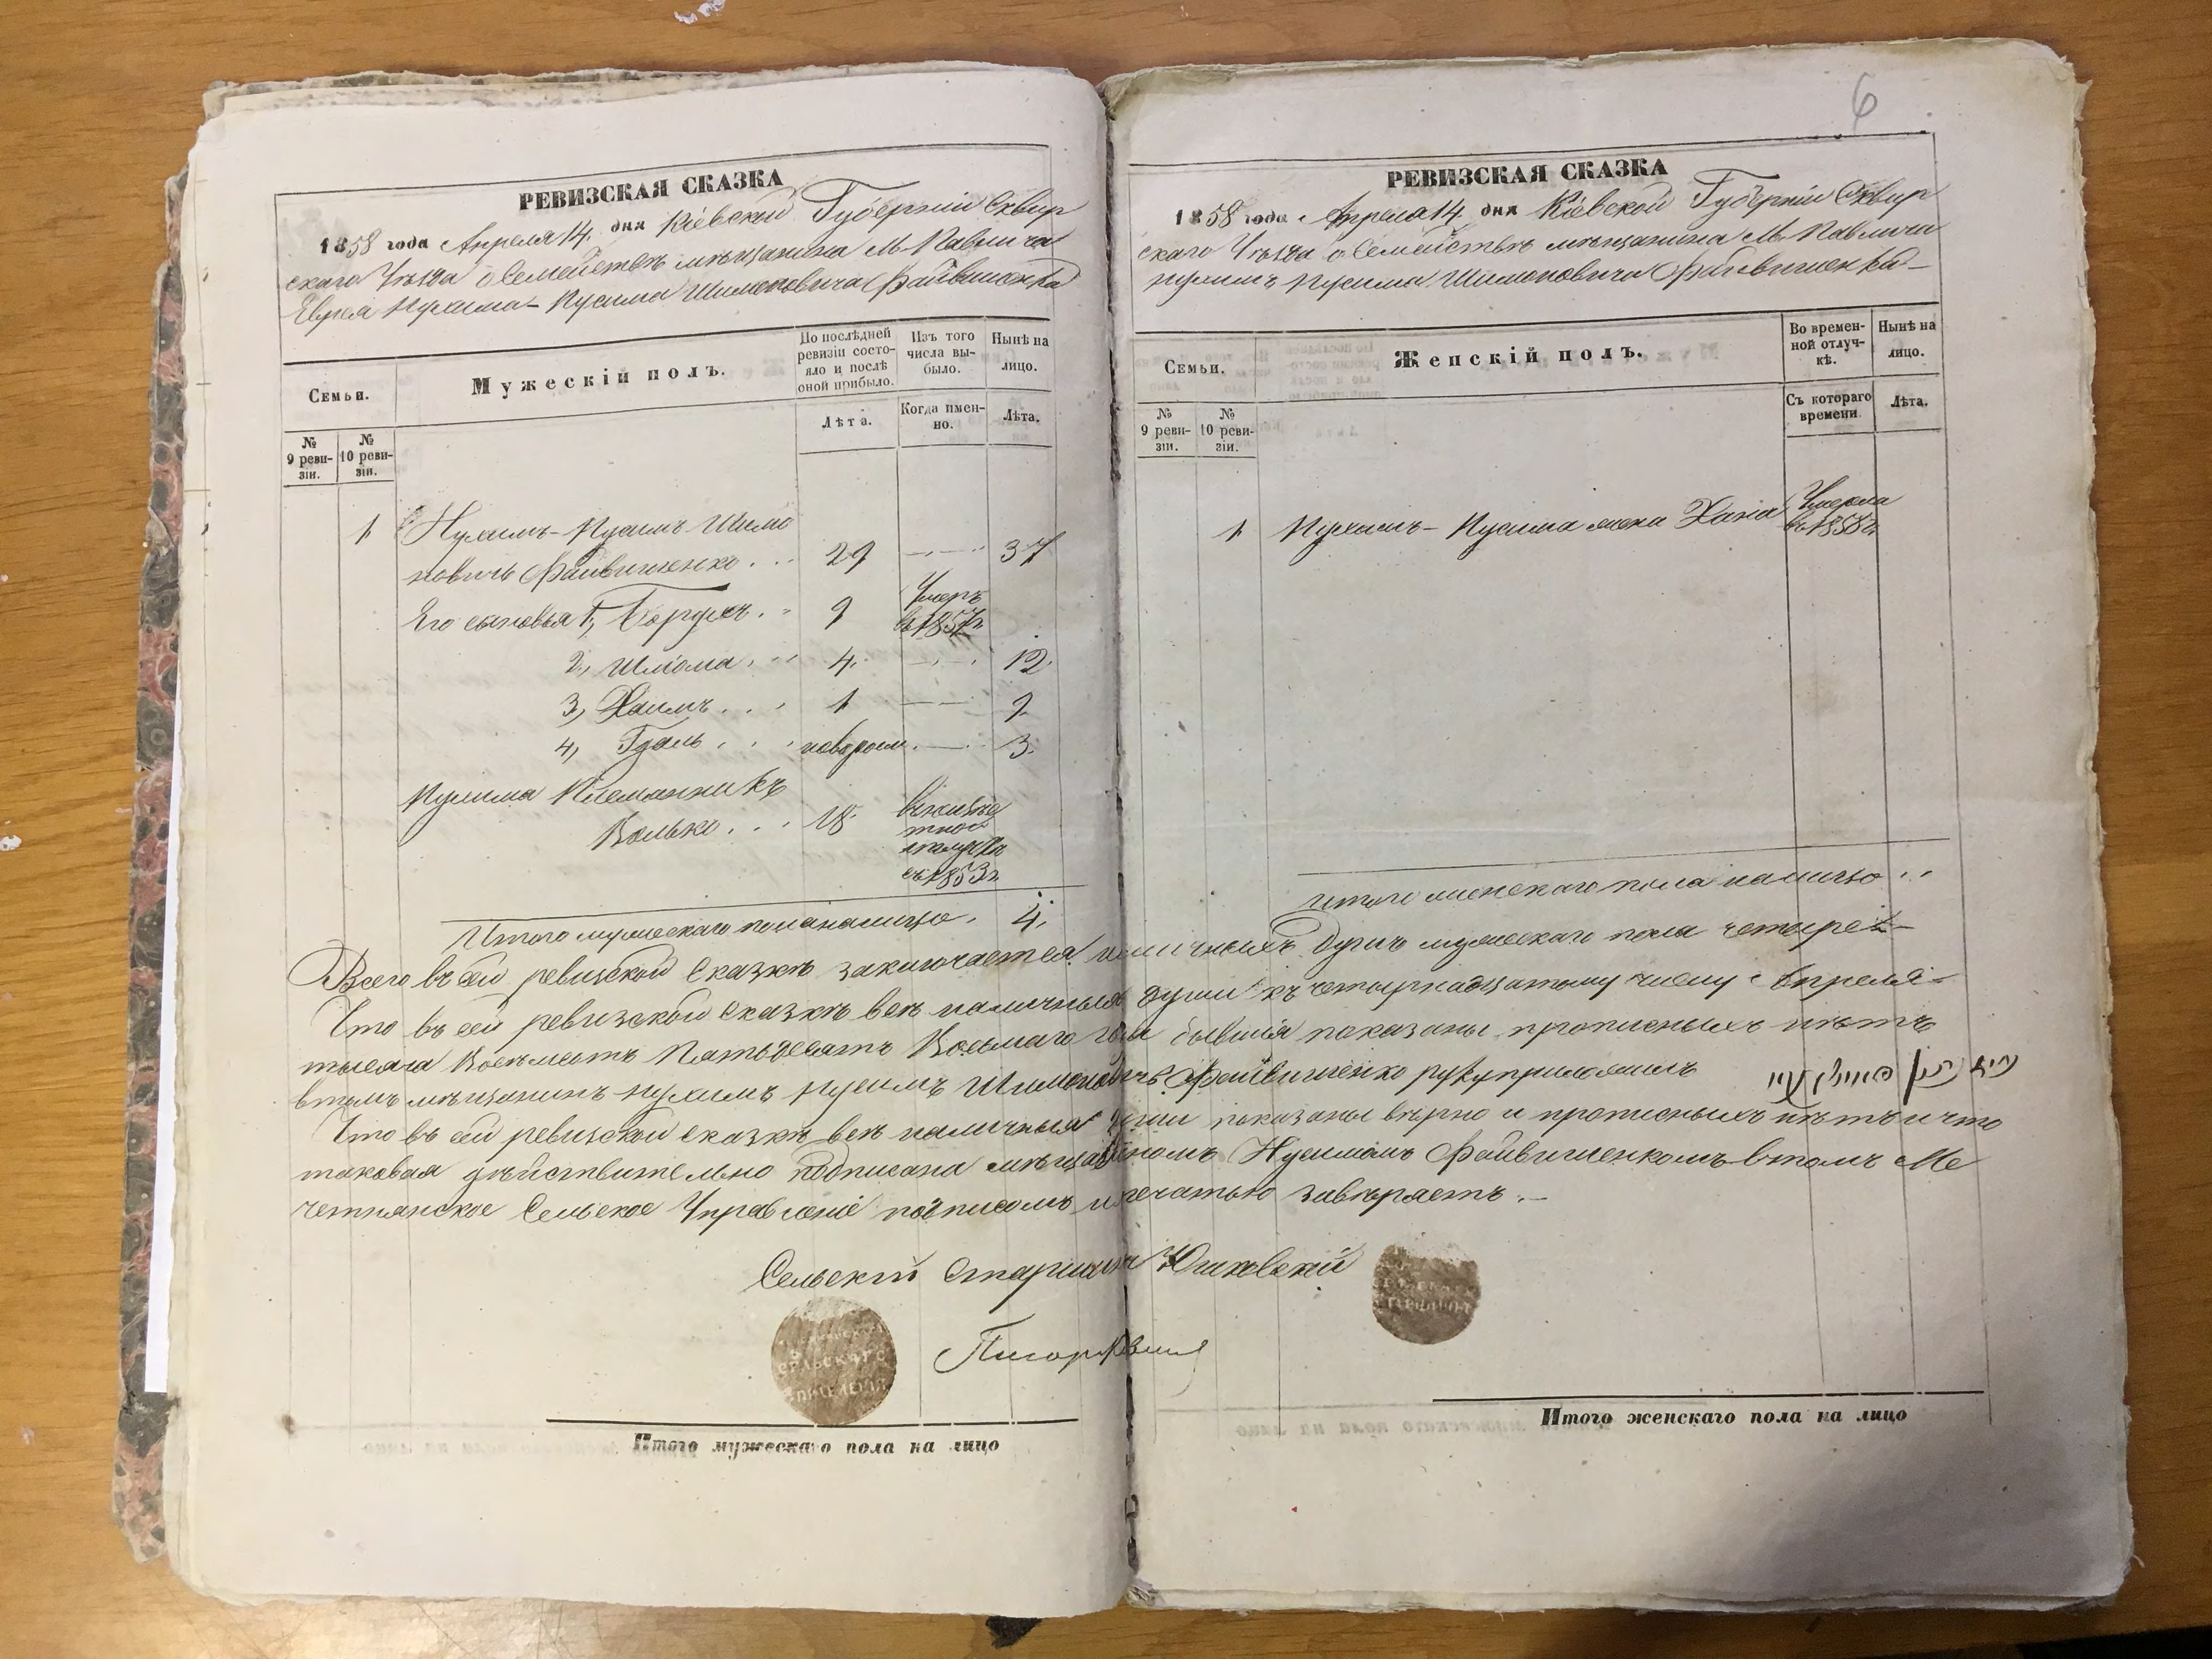 РЕВИЗСКАЯ СКАЗКА
1858 года Апреля 14. дня Кіевской Губерніи Сквир
скаго Уѣзда о Семействѣ мѣщанина М. Павлича
Еврея Нухима-Нусима Шимоновича Файвишенка
Семьи.
Мужескій полъ.
По послѣдней
ревизіи состо-
яло и послѣ
оной прибыло.
Изъ того
числа вы-
было.
Нынѣ на
лицо.
Лѣта.
Когда имен-
но.
Лѣта.
№
9 реви-
зіи.
№
10 реви-
зіи.
1 Нухимъ-Нусимъ Шимо
новичъ Файвишенко . . . 29 37
Его сыновья 1, . . 9 Умеръ
въ 1857 г.
2, Шлиома . . . 4. 12
3, Хаимъ . . . 1 9
4, . . . новорож. 3.
Нухима Племянникъ
Волько . . . 18
отлучкѣ
съ 1853 г.
Итого мужескаго пола налицо . 4.
РЕВИЗСКАЯ СКАЗКА
1858 года Апреля 14. дня Кіевской Губерніи Сквир
скаго Уѣзда о Семействѣ мѣщанина М. Павлича
Нухимъ Нусима Шимоновича Файвишенка
6
Семьи.
Женскій полъ.
Во времен-
ной отлуч-
кѣ.
Нынѣ на
лицо.
Съ котораго
времени.
Лѣта.
№
9 реви-
зіи.
№
10 реви-
зіи.
1 Нухимъ-Нусима жена Хана Умерла
въ 1858 г.
итого женскаго пола налицо . .
Всего въ сей ревизской сказкѣ заключается наличныхъ душъ мужескаго пола четыре
Что въ сей ревизской сказкѣ всѣ наличныя души къ четырнадцатому числу Апреля
тысяча Восемьсотъ Пятьдесятъ Восьмаго года бывшія показаны прописныхъ нѣтъ
втомъ мѣщанинъ Нухимъ Нусимъ Шимоновичъ Файвишенко руку приложилъ
Что въ сей ревизской сказкѣ всѣ наличныя души показаны вѣрно и прописныхъ нѣтъ и что
таковая дѣйствительно подписана мѣщаниномъ Нусимомъ Файвишенкомъ втомъ Ме
четнянское Сельское Управленіе подписомъ и печатью завѣряетъ.
Сельскій Старшина
Итого мужескаго пола на лицо
Итого женскаго пола на лицо